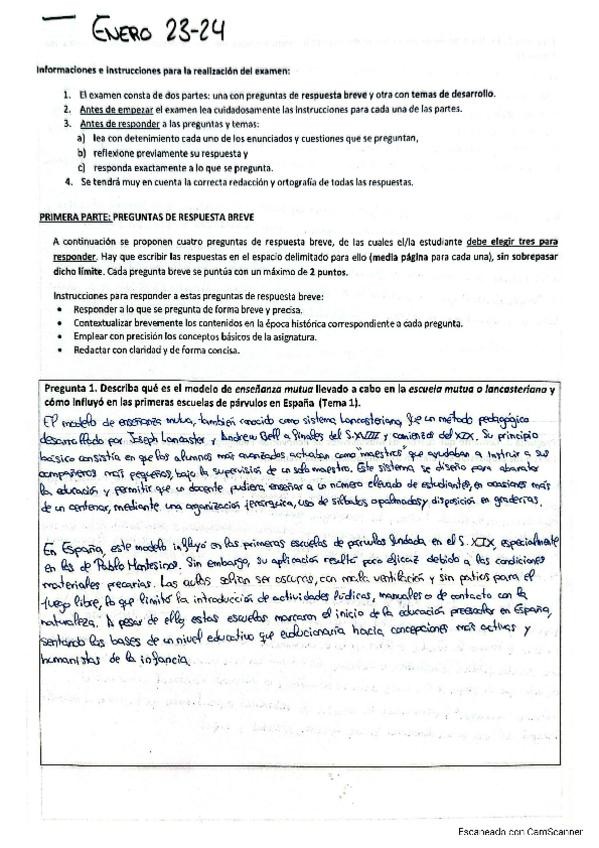 — ENERO 23-24
Informaciones e instrucciones para la realización del examen:
1. El examen consta de dos partes: una con preguntas de respuesta breve y otra con temas de desarrollo.
2. Antes de empezar el examen lea cuidadosamente las instrucciones para cada una de las partes.
3. Antes de responder a las preguntas y temas:
a) lea con detenimiento cada uno de los enunciados y cuestiones que se preguntan,
b) reflexione previamente su respuesta y
c) responda exactamente a lo que se pregunta.
4. Se tendrá muy en cuenta la correcta redacción y ortografía de todas las respuestas.
PRIMERA PARTE: PREGUNTAS DE RESPUESTA BREVE
A continuación se proponen cuatro preguntas de respuesta breve, de las cuales el/la estudiante debe elegir tres para
responder. Hay que escribir las respuestas en el espacio delimitado para ello (media página para cada una), sin sobrepasar
dicho límite. Cada pregunta breve se puntúa con un máximo de 2 puntos.
Instrucciones para responder a estas preguntas de respuesta breve:
• Responder a lo que se pregunta de forma breve y precisa.
• Contextualizar brevemente los contenidos en la época histórica correspondiente a cada pregunta.
• Emplear con precisión los conceptos básicos de la asignatura.
• Redactar con claridad y de forma concisa.
Pregunta 1. Describa qué es el modelo de enseñanza mutua llevado a cabo en la escuela mutua o lancasteriana y
cómo influyó en las primeras escuelas de párvulos en España (Tema 1).
El modelo de enseñanza mutua, también conocido como sistema Lancasteriano, fue un método pedagógico
desarrollado por Joseph Lancaster y Andrew Bell a finales del S.XVIII y comienzos del XIX. Su principio
básico consistía en que los alumnos más avanzados actuaban como "maestros" que ayudaban a instruir a sus
compañeros más pequeños, bajo la supervisión de un solo maestro. Este sistema se diseñó para abaratar
la educación y permitir que un docente pudiera enseñar a un número elevado de estudiantes, en ocasiones más
de un centenar, mediante una organización jerárquica, uso de silbatos o palmadas y disposición en graderías.
En España, este modelo influyó en las primeras escuelas de párvulos fundada en el S. XIX, especialmente
en las de Pablo Montesino. Sin embargo, su aplicación resultó poco eficaz debido a las condiciones
materiales precarias. Las aulas solían ser oscuras, con mala ventilación y sin patios para el
juego libre, lo que limitó la introducción de actividades lúdicas, manuales o de contacto con la
naturaleza. A pesar de ello, estas escuelas marcaron el inicio de la educación preescolar en España,
sentando las bases de un nivel educativo que evolucionaría hacia concepciones más activas y
humanistas de la infancia.
Escaneado con CamScanner